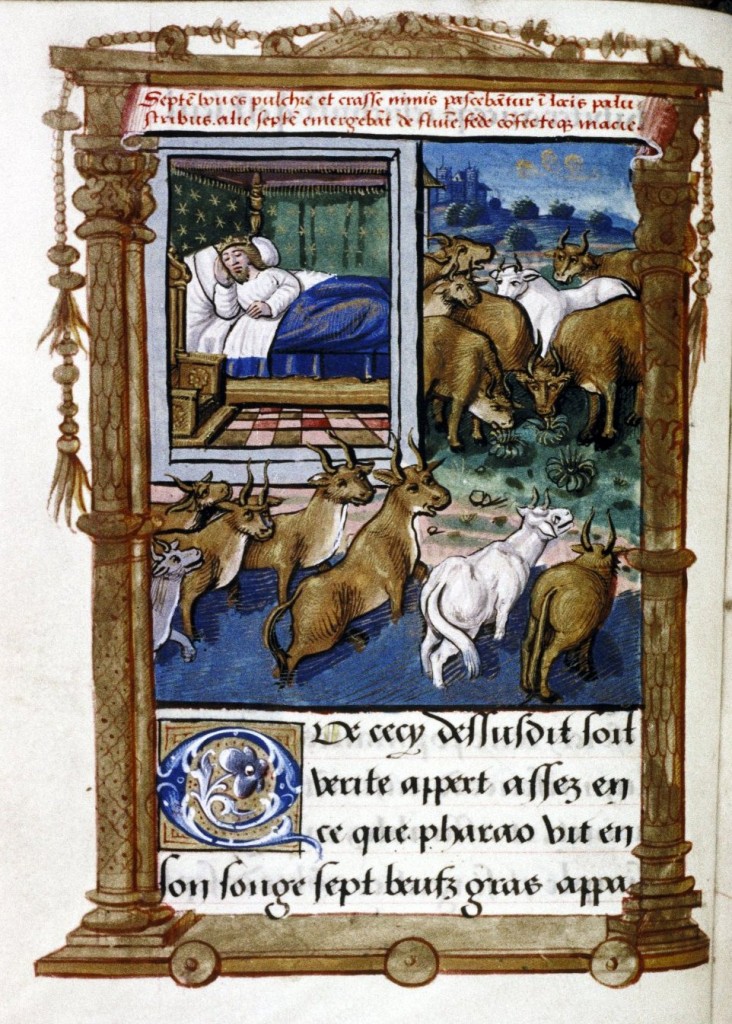 Septē boves pulchre et crasse nimis pascebātur ī locis palu
stribus. alie septē emergebāt de fluvie. fede cōfecteqȝ macie.
Que cecy dessusdit soit
verite appert assez en
ce que pharao vit en
son songe sept beufz gras appa